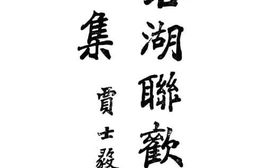 湖聯歡
集
賈士毅